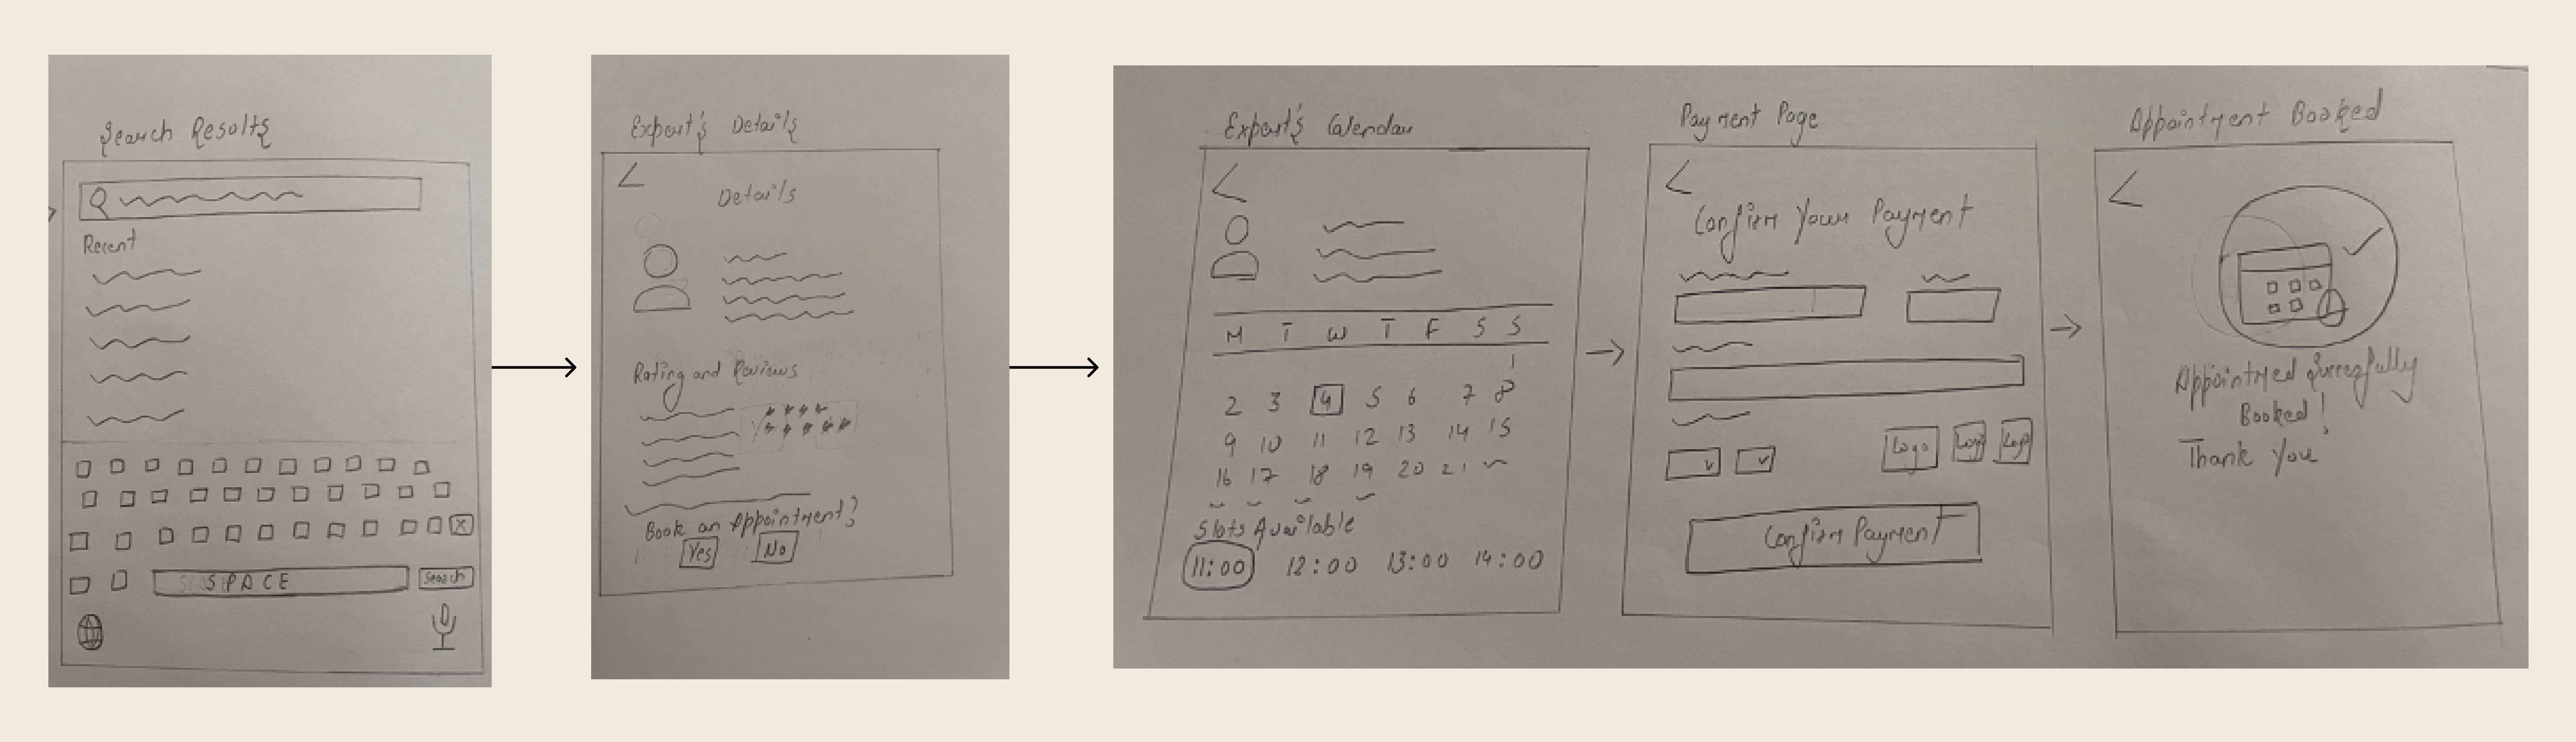 Search Results
Recent
SPACE
Search
Expert's Details
Details
Rating and Reviews
Book an Appointment?
Yes No
Expert's Calendar
M T W T F S S
1
2 3 4 5 6 7 8
9 10 11 12 13 14 15
16 17 18 19 20 21
Slots Available
11:00 12:00 13:00 14:00
Payment Page
Confirm Your Payment
Logo Logo Logo
Confirm Payment
Appointment Booked
Booked!
Thank You